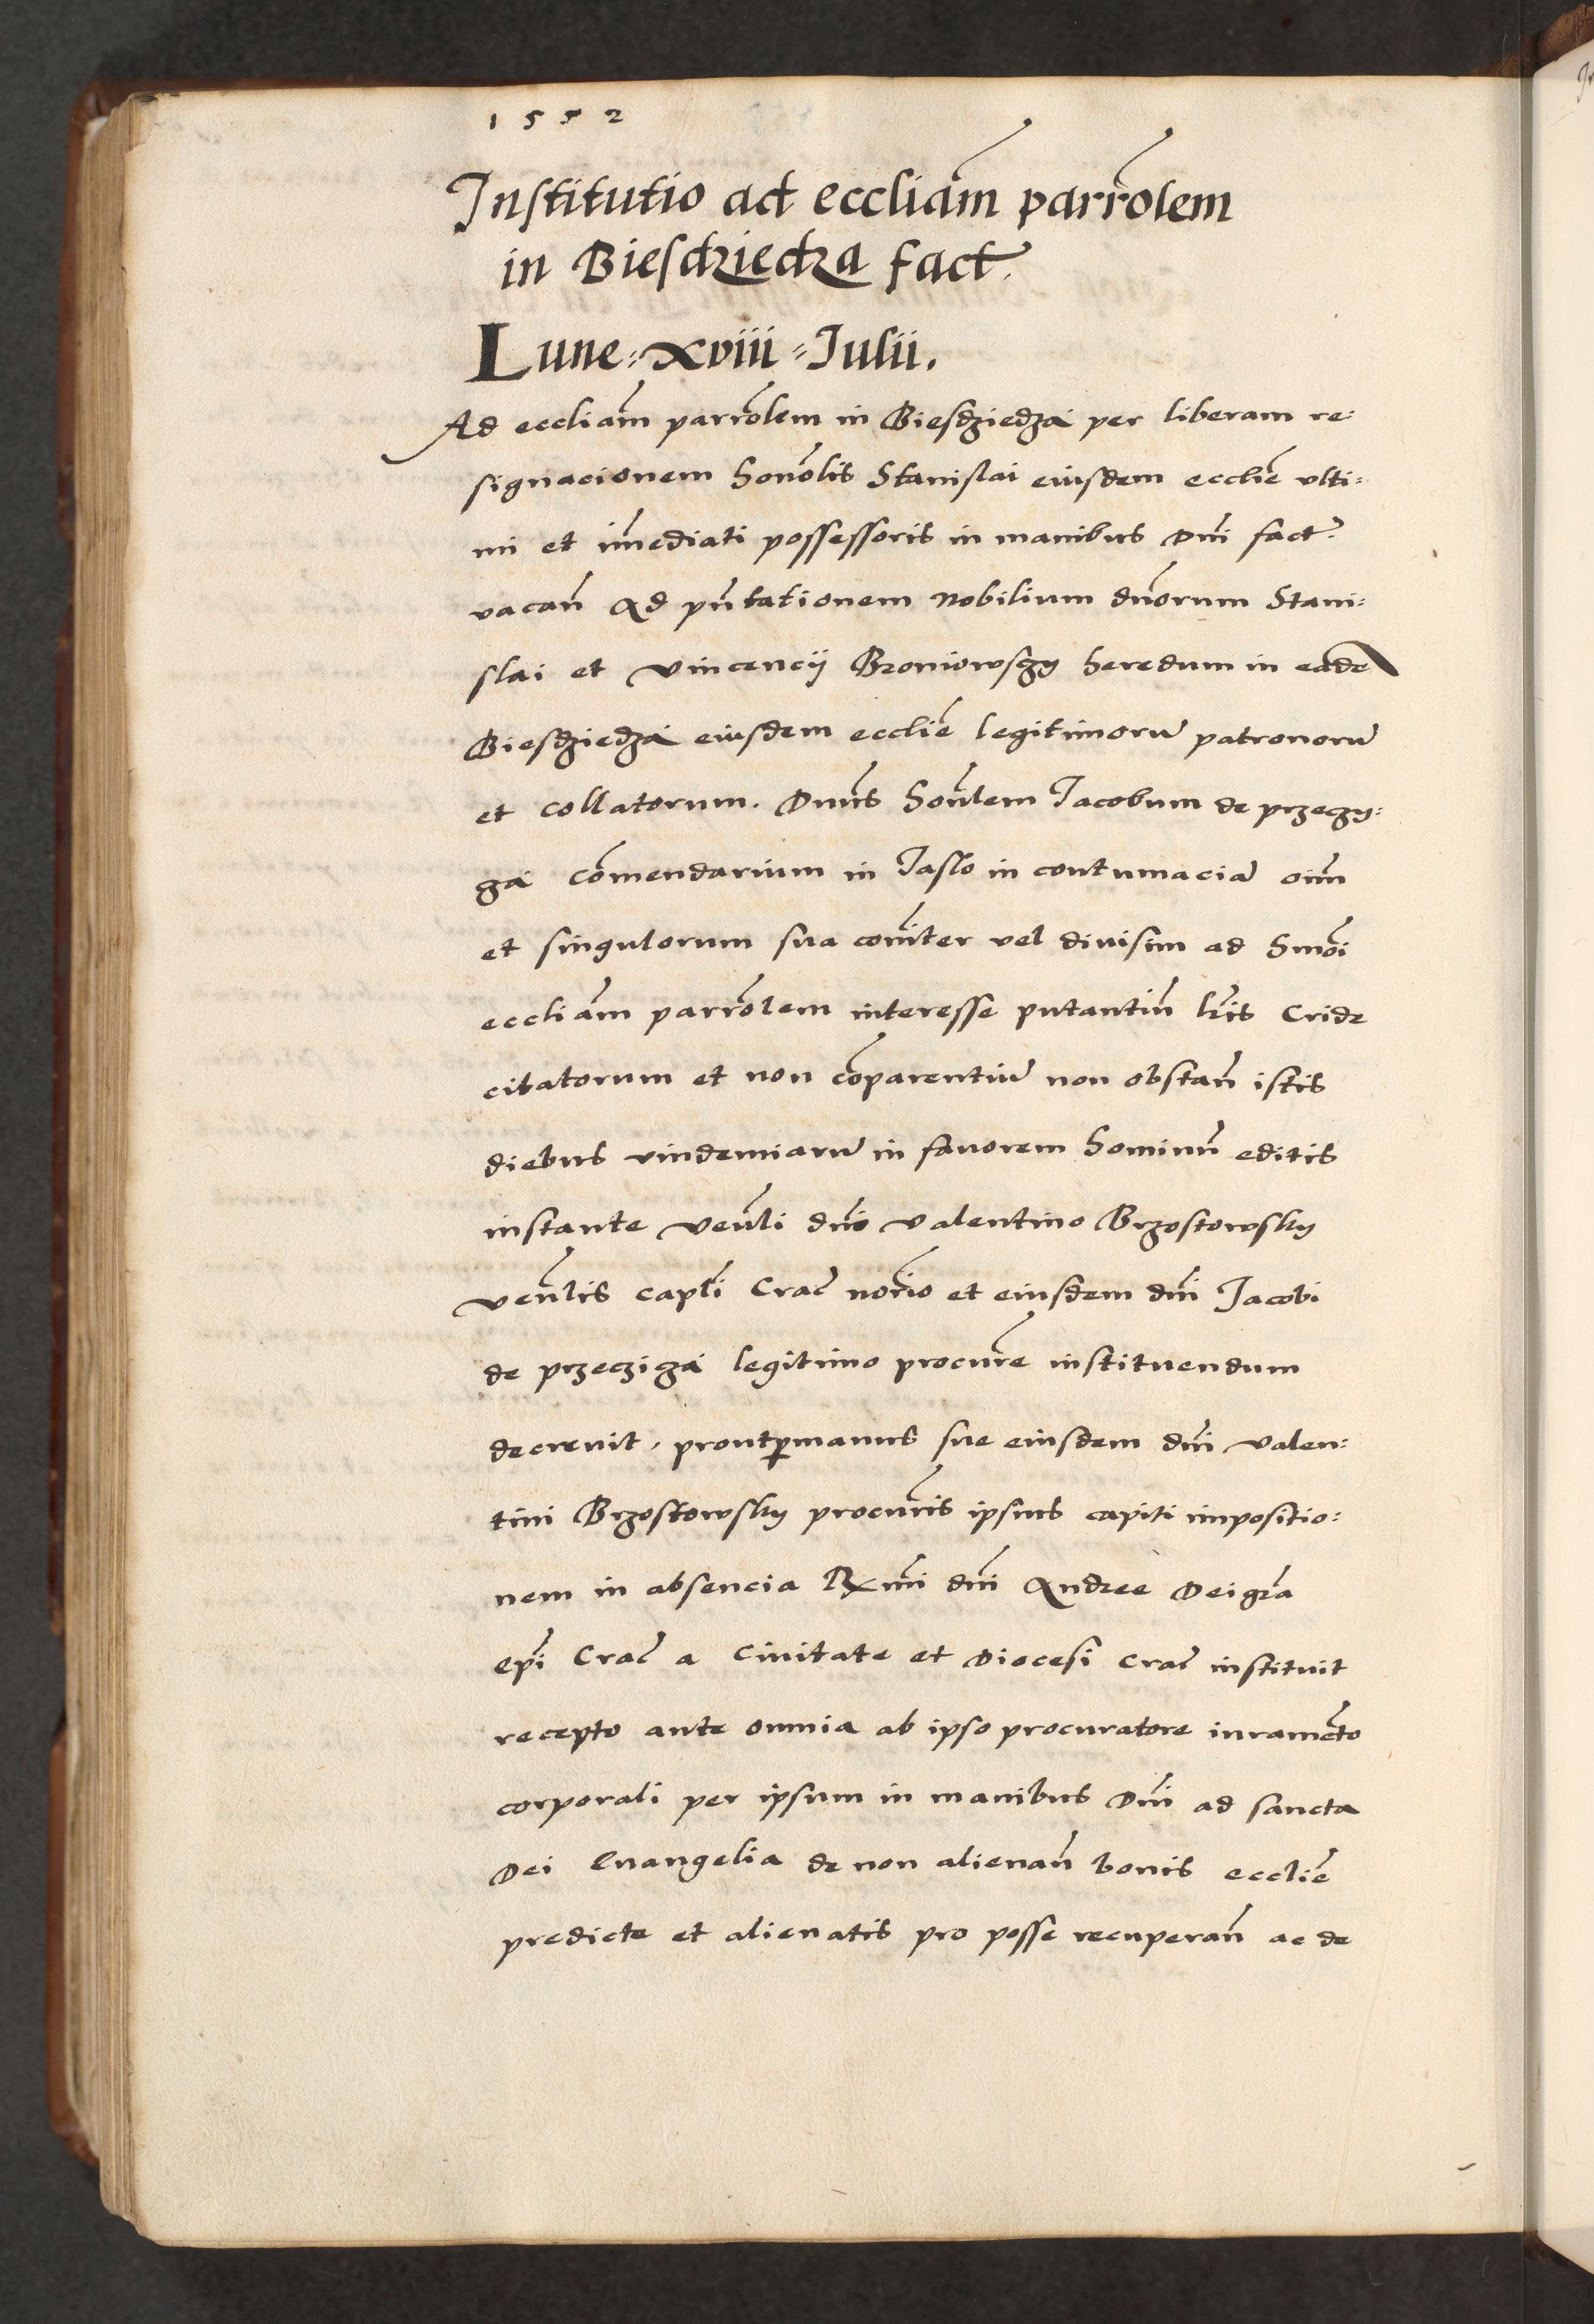 1552
Institutio ad eccliam parrolem
in Biesdziedza fact.
Lune = xviii = Julii.
Ad eccliam parrolem in Biesdziedza per liberam re=
signacionem honolis Stanislai eiusdem ecclie ulti=
mi et imediati possessoris in manibus Dni fact.
vacan Ad pntationem nobilium dnorum Stani=
slai et Vincencij Broniowsgy heredum in eade
Biesdziedza eiusdem ecclie legitimoru patronoru
et collatorum. Dnus honlem Jacobum de przeczy=
ga comendarium in Jaslo in contumacia oim
et singulorum sua coniter vel divisim ad hmoi
eccliam parrolem interesse putantiu lris Cride
citatorum et non comparentiu non obstan istis
diebus vindemiaru in favorem hominu editis
instante venli dno Valentino Brzostowsky
venlis capli Crac norio et eiusdem dni Jacobi
de przecziga legitimo procure instituendum
decrevit, prout p manus sue eiusdem dni Valen=
tini Brzostowsky procuris ipsius capiti impositio=
nem in absencia Rx̄mi dni Andree Dei gra
epi Crac a civitate et Diocesi Crac instituit
recepto ante omnia ab ipso procuratore iuramēto
corporali per ipsum in manibus Dni ad sancta
Dei Evangelia de non alienan bonis ecclie
predicte et alienatis pro posse recuperan ac de